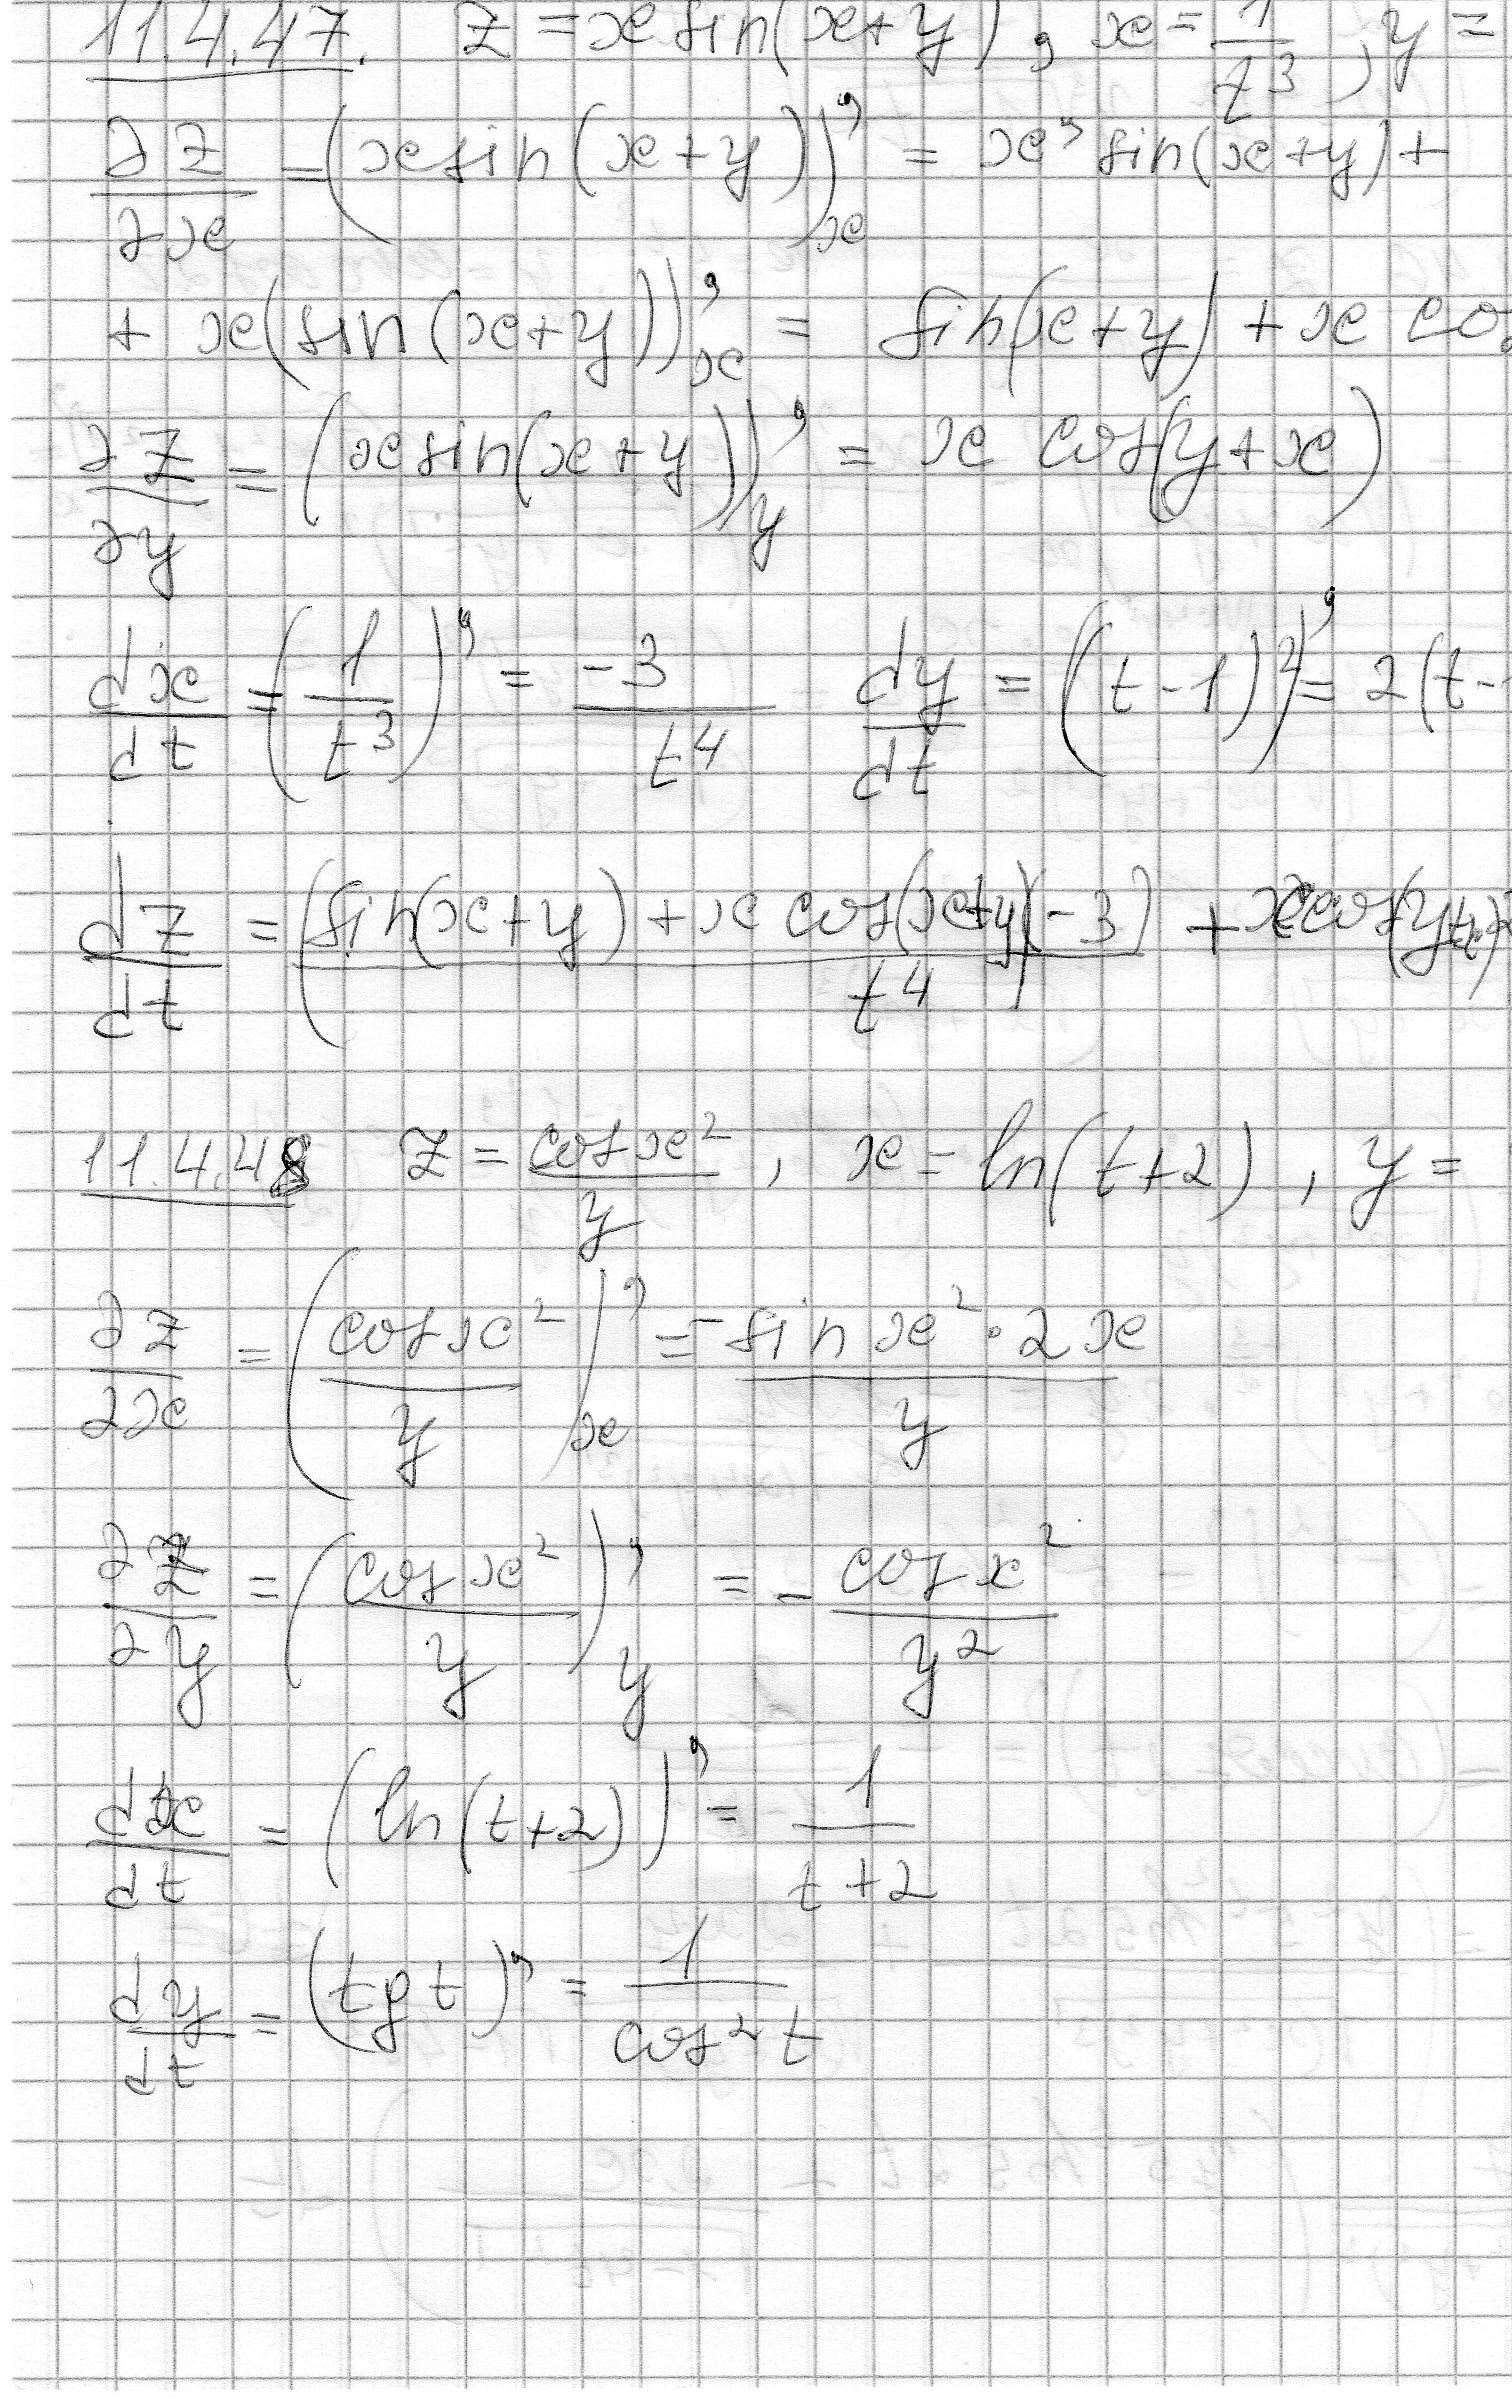 11.4.47. z = x sin(x+y), x = 1/t³, y =
∂z/∂x = (x sin(x+y))'ₓ = x' sin(x+y) +
+ x(sin(x+y))'ₓ = sin(x+y) + x cos
∂z/∂y = (x sin(x+y))'_y = x cos(y+x)
dx/dt = (1/t³)' = -3/t⁴ dy/dt = ((t-1)²)' = 2(t-1
dz/dt = (sin(x+y) + x cos(x+y)(-3)/t⁴ + x cos(y+x)·2
11.4.48 z = cos x²/y, x = ln(t+2), y =
∂z/∂x = (cos x²/y)'ₓ = -sin x²·2x/y
∂z/∂y = (cos x²/y)'_y = - cos x²/y²
dx/dt = (ln(t+2))' = 1/(t+2)
dy/dt = (tg t)' = 1/cos² t